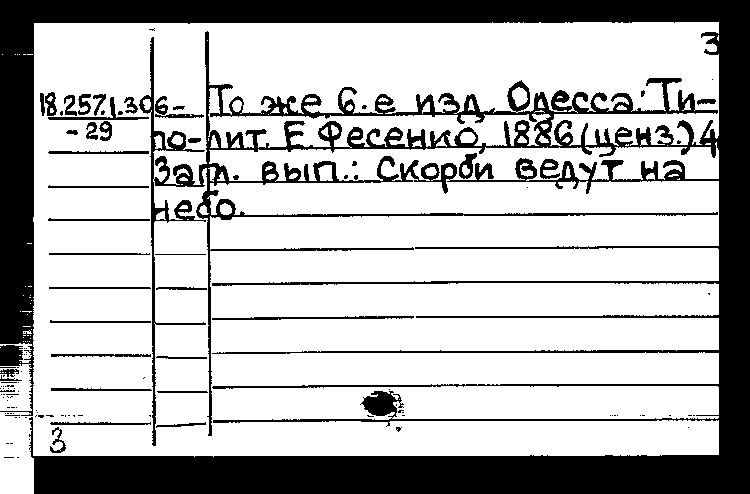 3
18.257.1.306-
-29
То же 6-е изд. Одесса: Ти-
по-лит. Е. Фесенко, 1886 (ценз.). 4
Загл. вып.: Скорби ведут на
небо.
3